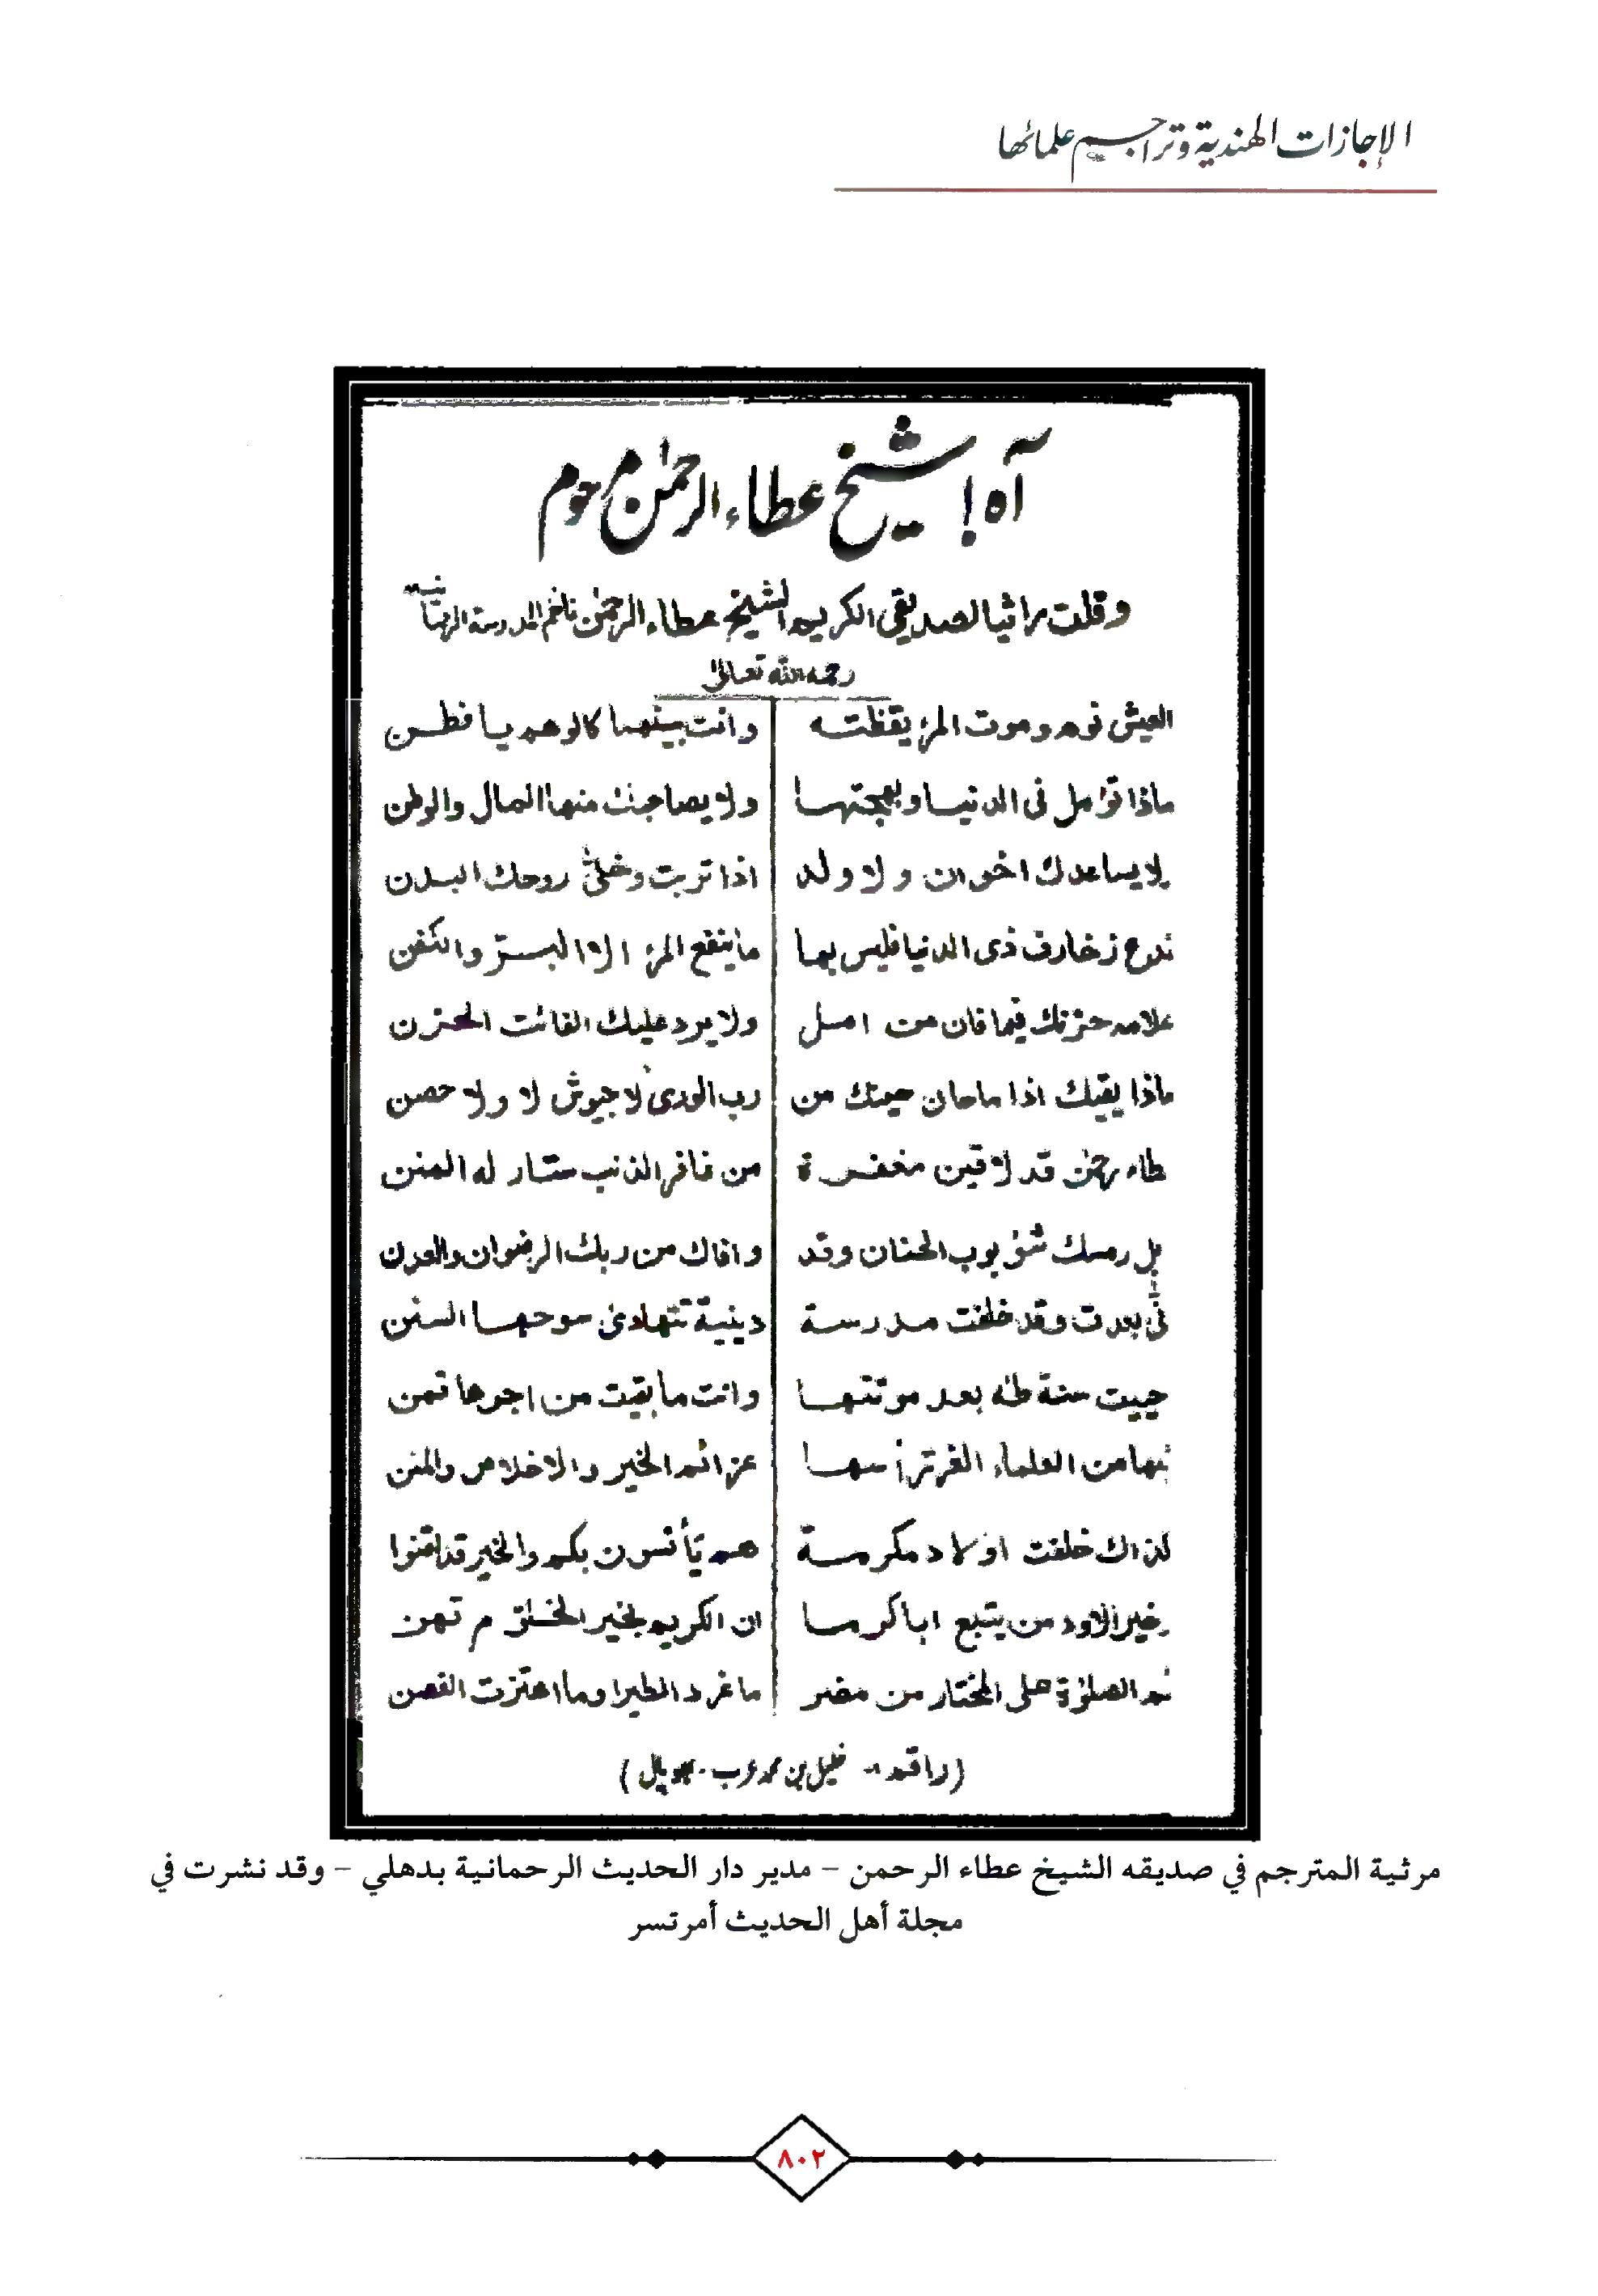 الإجازات الهندية وتراجم علمائها
آه! شیخ عطاء الرحمٰن مرحوم
وقلت راثيا لصديقى الكريم الشيخ عطاء الرحمٰن ناظم المدرسة الرحمانيه
رحمه الله تعالىٰ
العيش نوم وموت المرء يقظته وانت بينهما كالوهم يا فطن
ماذا تؤمل فى الدنيا وبهجتها ولا يصاحبك منها المال والوطن
لا يساعدك اخوان ولا ولد اذا تربت وخلىّ روحك البدن
ندع زخارف ذى الدنيا فليس بها ما ينفع المرء الا البر والكفن
علام حزنك فيما فان من امل ولا يرد عليك الفائت الحزن
ماذا يقيك اذا ما حان حينك من رب الورىٰ لا جيوش لا ولا حصن
طاء رحمٰن قد لاقين مغفرة من غافر الذنب ستار له المنن
بل رمسك شؤبوب الحنان وقد وافاك من ربك الرضوان والعدن
نى بعدت وقد خلفت مدرسة دينية تتهادىٰ سوحها السنن
حييت سنة طٰه بعد موتتها وانت ما بقيت من اجرها قمن
بها من العلماء الغر ترأسها عزائم الخير والاخلاص والمنن
لذاك خلفت اولاد مكرمة هم يأنسون بكم والخير قد اقنوا
خير الاود من يتبع ابا كرما ان الكريم لخير الخلق م تهن
ثم الصلوٰة على المختار من مضر ما غرد الطير او ما اهتزت الغصن
(راقم - خليل بن محمد عرب - بھوپال)
مرثية المترجم في صديقه الشيخ عطاء الرحمن – مدير دار الحديث الرحمانية بدهلي – وقد نشرت في
مجلة أهل الحديث أمرتسر
٨٠٢